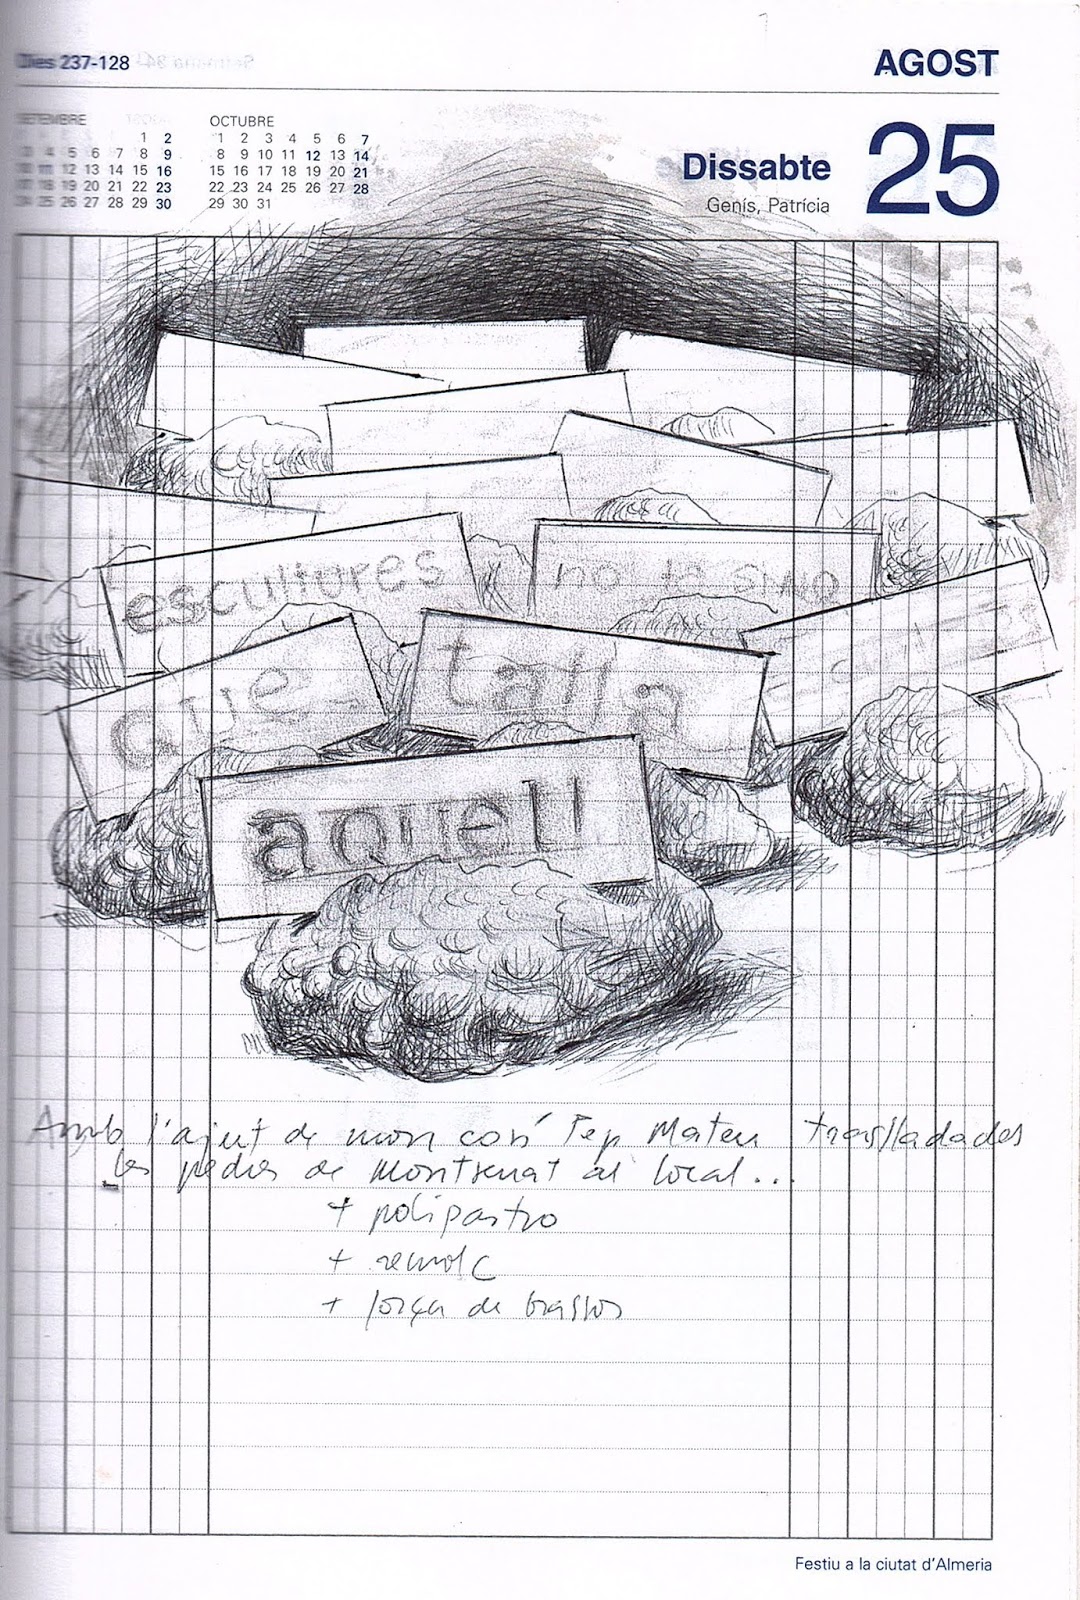 Dies 237-128
AGOST
SETEMBRE
1 2
3 4 5 6 7 8 9
10 11 12 13 14 15 16
17 18 19 20 21 22 23
24 25 26 27 28 29 30
OCTUBRE
1 2 3 4 5 6 7
8 9 10 11 12 13 14
15 16 17 18 19 20 21
22 23 24 25 26 27 28
29 30 31
Dissabte
25
Genís, Patrícia
escultures
no la
que
talla
aquell
Amb l'ajut de mon cosí Pep Mateu traslladades
les pedres de Montserrat al local...
+ polipastro
+ remolc
+ força de brassos
Festiu a la ciutat d'Almeria